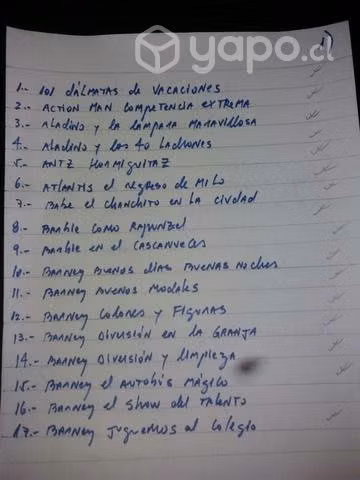 yapo.cl
1)
1.- 101 DÁLMATAS DE VACACIONES
2.- ACTION MAN COMPETENCIA EXTREMA
3.- ALADINO y LA LAMPARA MARAVILLOSA
4.- ALADINO y LOS 40 LADRONES
5.- ANTZ HORMIGUITAZ
6.- ATLANTIS el regreso DE MILO
7.- BABE el CHANCHITO EN LA CIUDAD
8.- BARBIE COMO RAPUNZEL
9.- BARBIE EN el CASCANUECES
10.- BARNEY BUENOS DIAS BUENAS NOCHES
11.- BARNEY BUENOS MODALES
12.- BARNEY COLORES y FIGURAS
13.- BARNEY DIVERSIÓN EN LA GRANJA
14.- BARNEY DIVERSIÓN y LIMPIEZA
15.- BARNEY el AUTOBÚS MÁGICO
16.- BARNEY el SHOW del TALENTO
17.- BARNEY JUGUEMOS AL COLEGIO